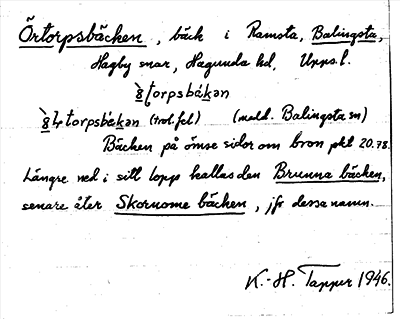 Örtorpsbäcken, bäck i Ramsta, Balingsta,
Hagby snar, Hagunda hd, Upps. l.
torpsbäkən
torpsbäkən (trol. fel) (medd. Balingsta sn)
Bäcken på ömse sidor om bron pkt 20.78.
Längre ned i sitt lopp kallas den Brunna bäcken,
senare åter Skornome bäcken, jfr dessa namn.
K.-H. Tapper 1946.